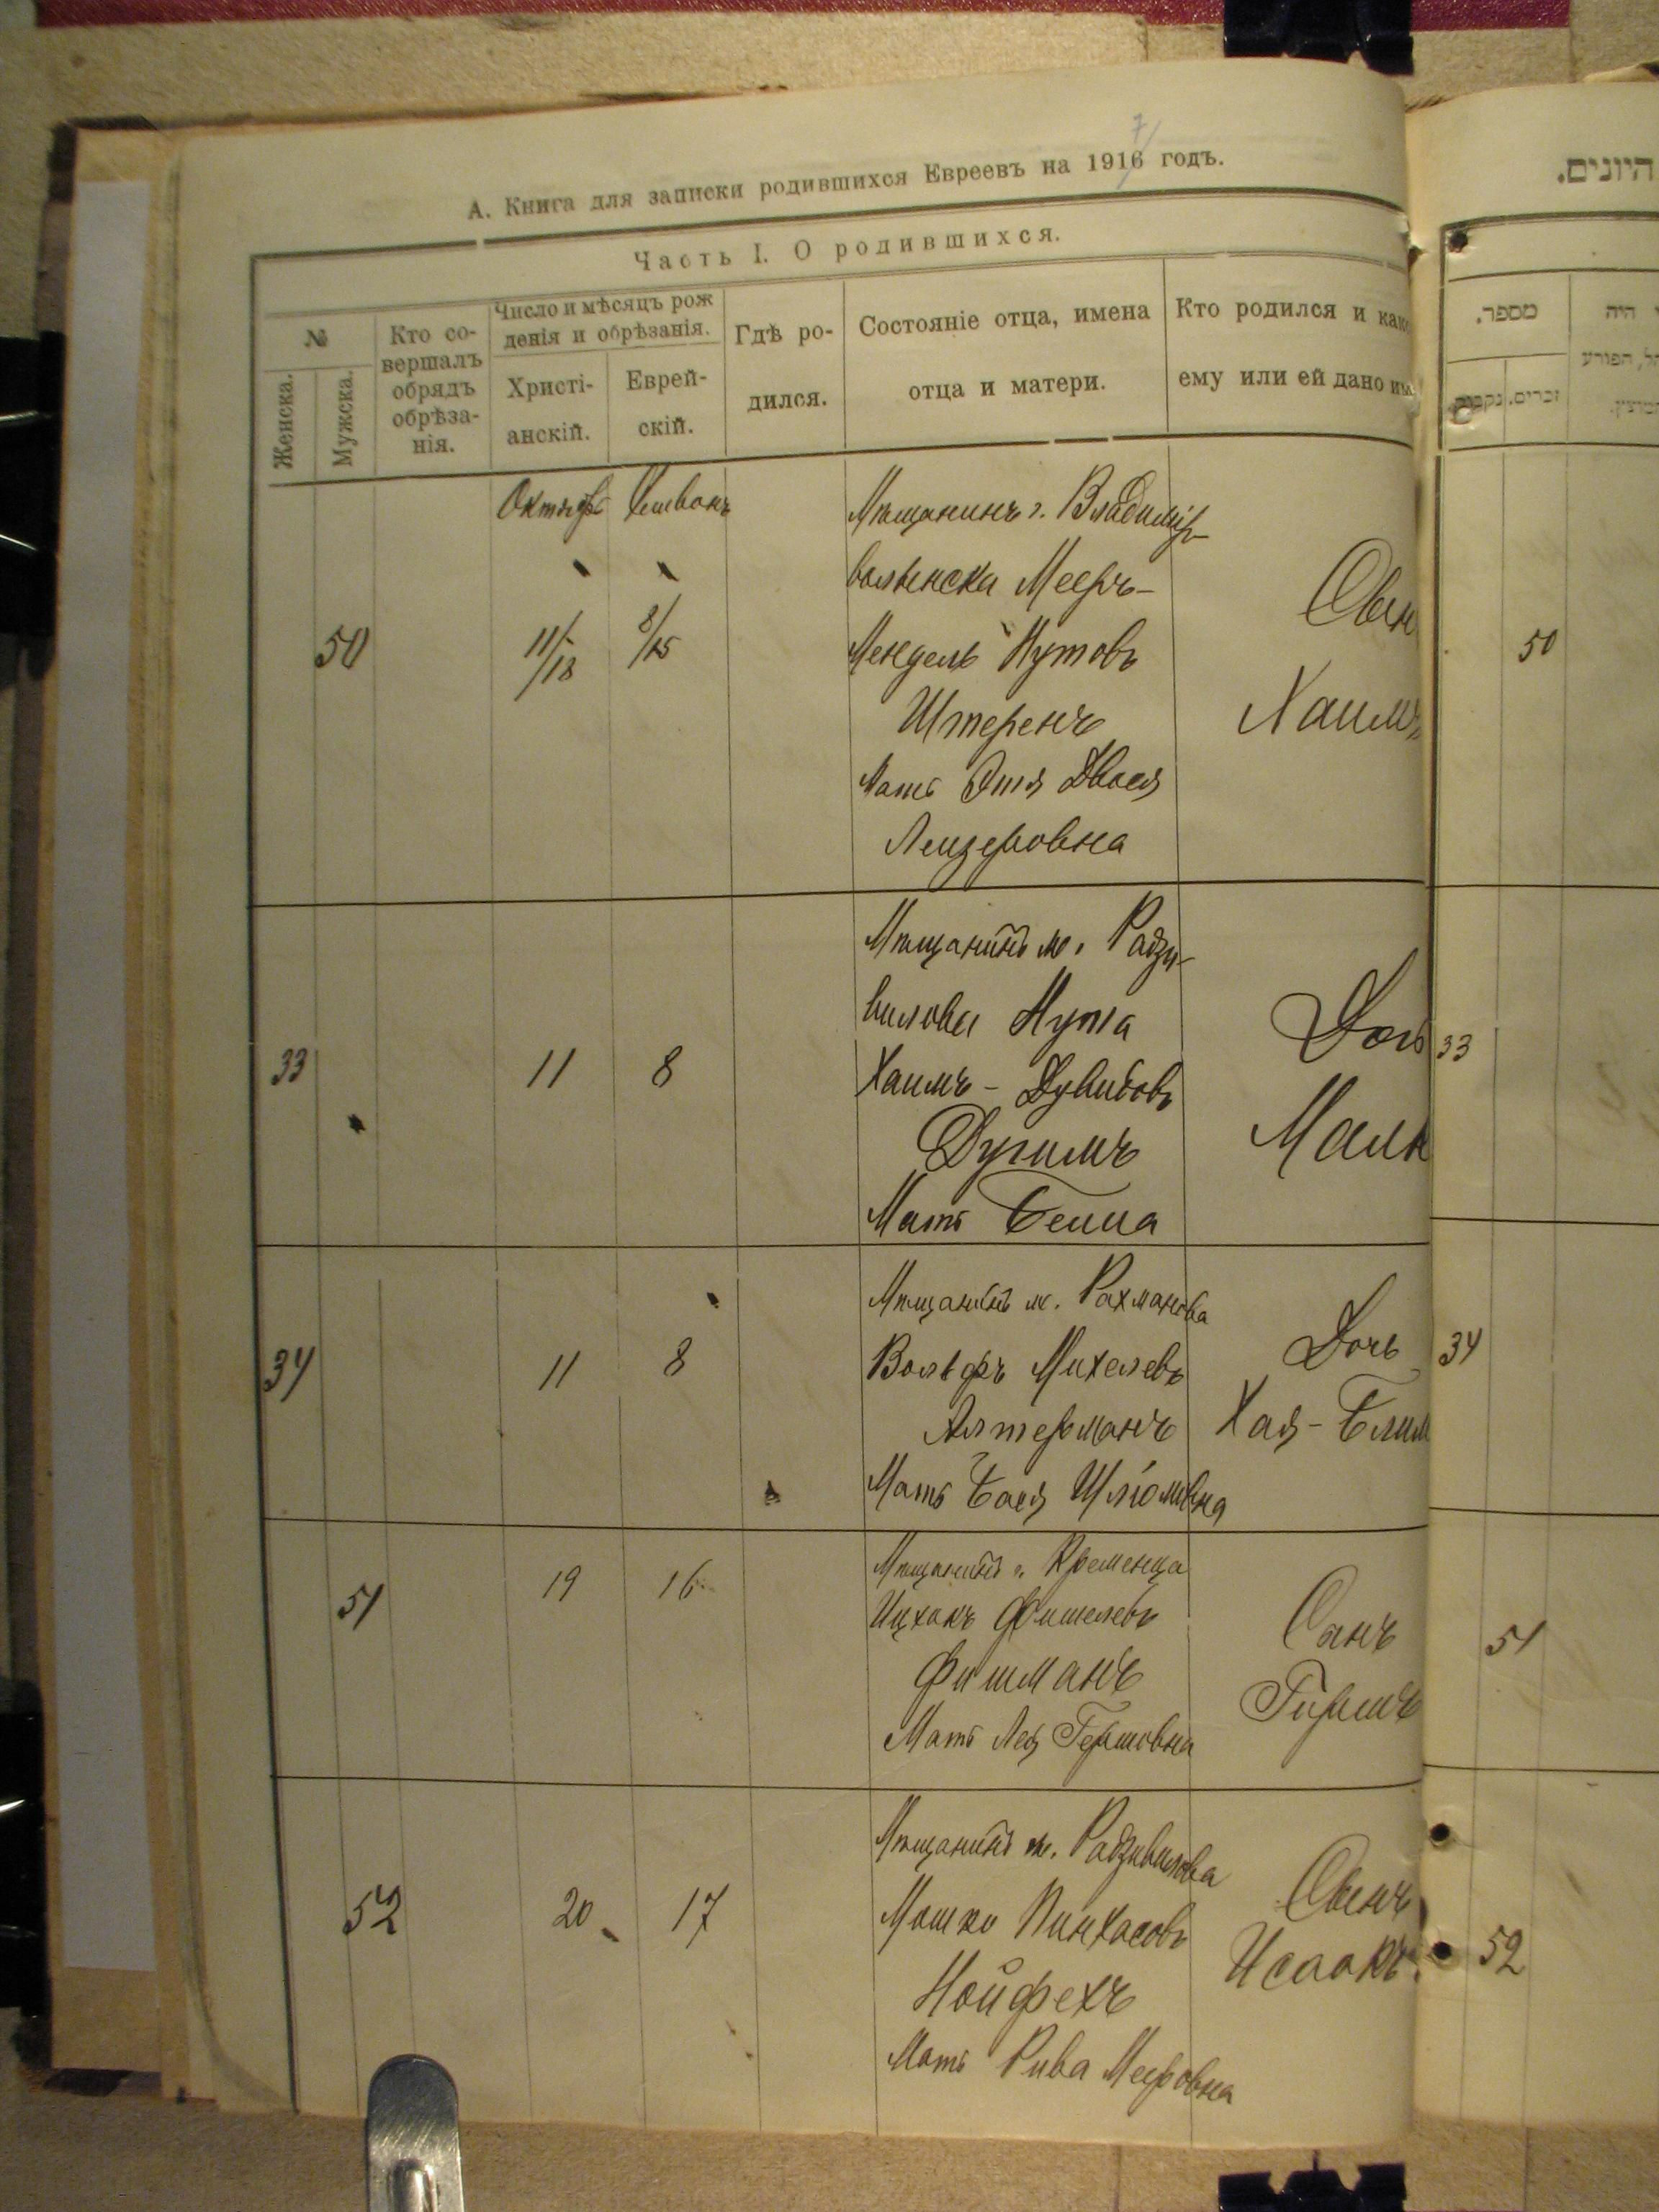 А. Книга для записки родившихся Евреевъ на 1916 годъ.
7
Часть I. О родившихся.
№
Женска.
Мужска.
Кто со-
вершалъ
обрядъ
обрѣза-
нія.
Число и мѣсяцъ рож
денія и обрѣзанія.
Христі-
анскій.
Еврей-
скій.
Гдѣ ро-
дился.
Состояніе отца, имена
отца и матери.
Кто родился и как
ему или ей дано им
Октябрь Хешванъ
50
11/18
8/15
Мѣщанинъ г. Владимір-
волынска Мееръ-
Мендель Нутовъ
Штеренъ
Мать Этя Двося
Лейзеровна
Сын
Хаимъ
33
11
8
Мѣщанинъ м. Радзи-
вилова Нута
Хаимъ-Дувидовъ
Мать Бейла
Доч
Малк
34
11
8
Мѣщанинъ м. Рахманова
Вольфъ Михелевъ
Алтерманъ
Мать Бася Шліомовна
Дочь
Хая-Блим
51
19
16
Мѣщанинъ г. Кременца
Ицхакъ Фишелевъ
Фишманъ
Мать Лея Гершовна
Сынъ
Гершъ
52
20
17
Мѣщанинъ м. Радзивилова
Мошко Пинхасовъ
Нойфехъ
Мать Рива Меировна
Сынъ
Исаакъ
היונים.
מספר.
היה
זכרים.
50
33
34
51
52